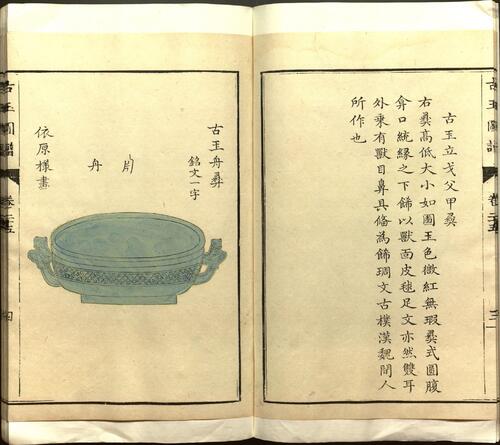 古玉圖譜
卷二十五
三
古玉立戈父甲彝
右彝高低大小如圖玉色微紅無瑕彝式圓腹
弇口純緣之下飾以獸面皮毬足文亦然雙耳
外乘有獸目鼻具俻為飾琱文古樸漢魏間人
所作也
古玉舟彝
銘文一字
舟
依原樣畫
古玉圖譜
卷二十五
四